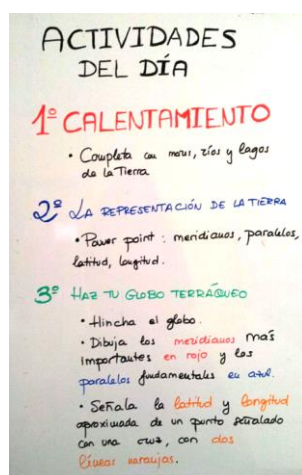 ACTIVIDADES
DEL DÍA
1º CALENTAMIENTO
• Completa con mares, ríos y lagos
de la Tierra
2º LA REPRESENTACIÓN DE LA TIERRA
• Power point : meridianos, paralelos,
latitud, longitud.
3º HAZ TU GLOBO TERRÁQUEO
• Hincha el globo.
• Dibuja los meridianos más
importantes en rojo y los
paralelos fundamentales en azul.
• Señala la latitud y longitud
aproximada de un punto señalado
con una cruz, con dos
líneas naranjas.